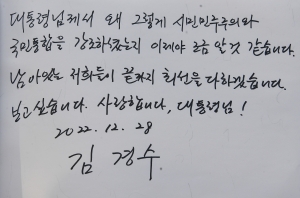 대통령님께서 왜 그렇게 시민민주주의와
국민통합을 강조하셨는지 이제야 조금 알 것 같습니다.
남아있는 저희들이 끝까지 최선을 다하겠습니다.
보고 싶습니다. 사랑합니다, 대통령님!
2022. 12. 28
김 경 수